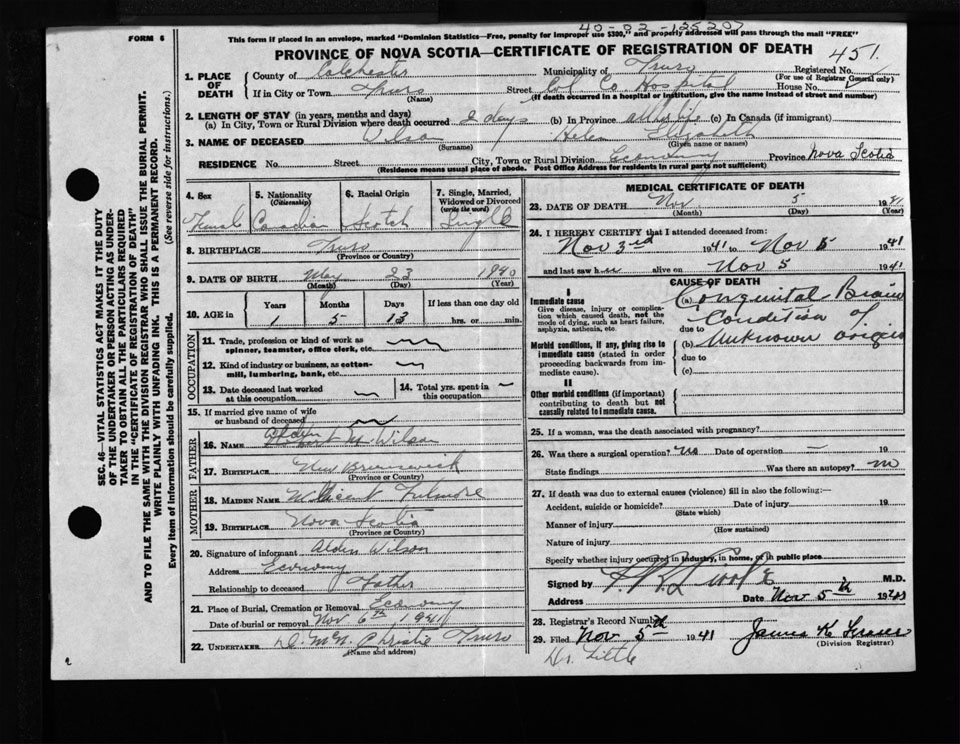 40-02-125207
FORM 6
This form if placed in an envelope, marked "Dominion Statistics—Free, penalty for improper use $300," and properly addressed will pass through the mail "FREE"
PROVINCE OF NOVA SCOTIA—CERTIFICATE OF REGISTRATION OF DEATH
451.
1. PLACE OF DEATH
County of Colchester Municipality of Truro Registered No.
(For use of Registrar General only)
If in City or Town Truro Street Col. Co. Hospital House No.
(Name) (If death occurred in a hospital or institution, give the name instead of street and number)
2. LENGTH OF STAY (in years, months and days)
(a) In City, Town or Rural Division where death occurred 2 days (b) In Province all her life (c) In Canada (if immigrant)
3. NAME OF DECEASED Wilson Helen Elizabeth
(Surname) (Given name or names)
RESIDENCE No. Street City, Town or Rural Division Economy Province Nova Scotia
(Residence means usual place of abode. Post Office Address for residents in rural parts not sufficient)
SEC. 46—VITAL STATISTICS ACT MAKES IT THE DUTY
OF THE UNDERTAKER OR PERSON ACTING AS UNDER-
TAKER TO OBTAIN ALL THE PARTICULARS REQUIRED
IN THE "CERTIFICATE OF REGISTRATION OF DEATH"
AND TO FILE THE SAME WITH THE DIVISION REGISTRAR WHO SHALL ISSUE THE BURIAL PERMIT.
WRITE PLAINLY WITH UNFADING INK. THIS IS A PERMANENT RECORD.
Every item of information should be carefully supplied. (See reverse side for instructions.)
4. Sex
Female
5. Nationality
(Citizenship)
Canadian
6. Racial Origin
Scotch
7. Single, Married, Widowed or Divorced
(write the word)
Single
8. BIRTHPLACE Truro
(Province or Country)
9. DATE OF BIRTH May 23 1940
(Month) (Day) (Year)
10. AGE in Years Months Days If less than one day old
1 5 13 hrs. or min.
OCCUPATION
11. Trade, profession or kind of work as
spinner, teamster, office clerk, etc.
12. Kind of industry or business, as cotton-
mill, lumbering, bank, etc.
13. Date deceased last worked
at this occupation
14. Total yrs. spent in
this occupation
15. If married give name of wife
or husband of deceased
FATHER
16. NAME Alden M. Wilson
17. BIRTHPLACE New Brunswick
(Province or Country)
MOTHER
18. MAIDEN NAME Millicent Fulmore
19. BIRTHPLACE Nova Scotia
(Province or Country)
20. Signature of informant Alden Wilson
Address Economy
Relationship to deceased Father
21. Place of Burial, Cremation or Removal Economy
Date of burial or removal Nov 6th 1941
22. UNDERTAKER Christie Truro
(Name and address)
MEDICAL CERTIFICATE OF DEATH
23. DATE OF DEATH Nov 5 1941
(Month) (Day) (Year)
24. I HEREBY CERTIFY that I attended deceased from:
Nov 3rd 1941 to Nov 5 1941
and last saw her alive on Nov 5 1941
CAUSE OF DEATH
I
Immediate cause
Give disease, injury or compli-
cation which caused death, not the
mode of dying, such as heart failure,
asphyxia, asthenia, etc.
Morbid conditions, if any, giving rise to
immediate cause (stated in order
proceeding backwards from im-
mediate cause).
II
Other morbid conditions (if important)
contributing to death but not
causally related to immediate cause.
(a) Congenital Brain
due to Condition of
(b) Unknown origin
due to
(c)
25. If a woman, was the death associated with pregnancy?
26. Was there a surgical operation? no Date of operation 19
State findings Was there an autopsy? no
27. If death was due to external causes (violence) fill in also the following:—
Accident, suicide or homicide? Date of injury 19
(State which)
Manner of injury
(How sustained)
Nature of injury
Specify whether injury occurred in industry, in home, or in public place
Signed by M.D.
Address Date Nov 5th 1941
28. Registrar's Record Number
29. Filed Nov 5th 1941 James K Fraser
(Division Registrar)
Dr. Little